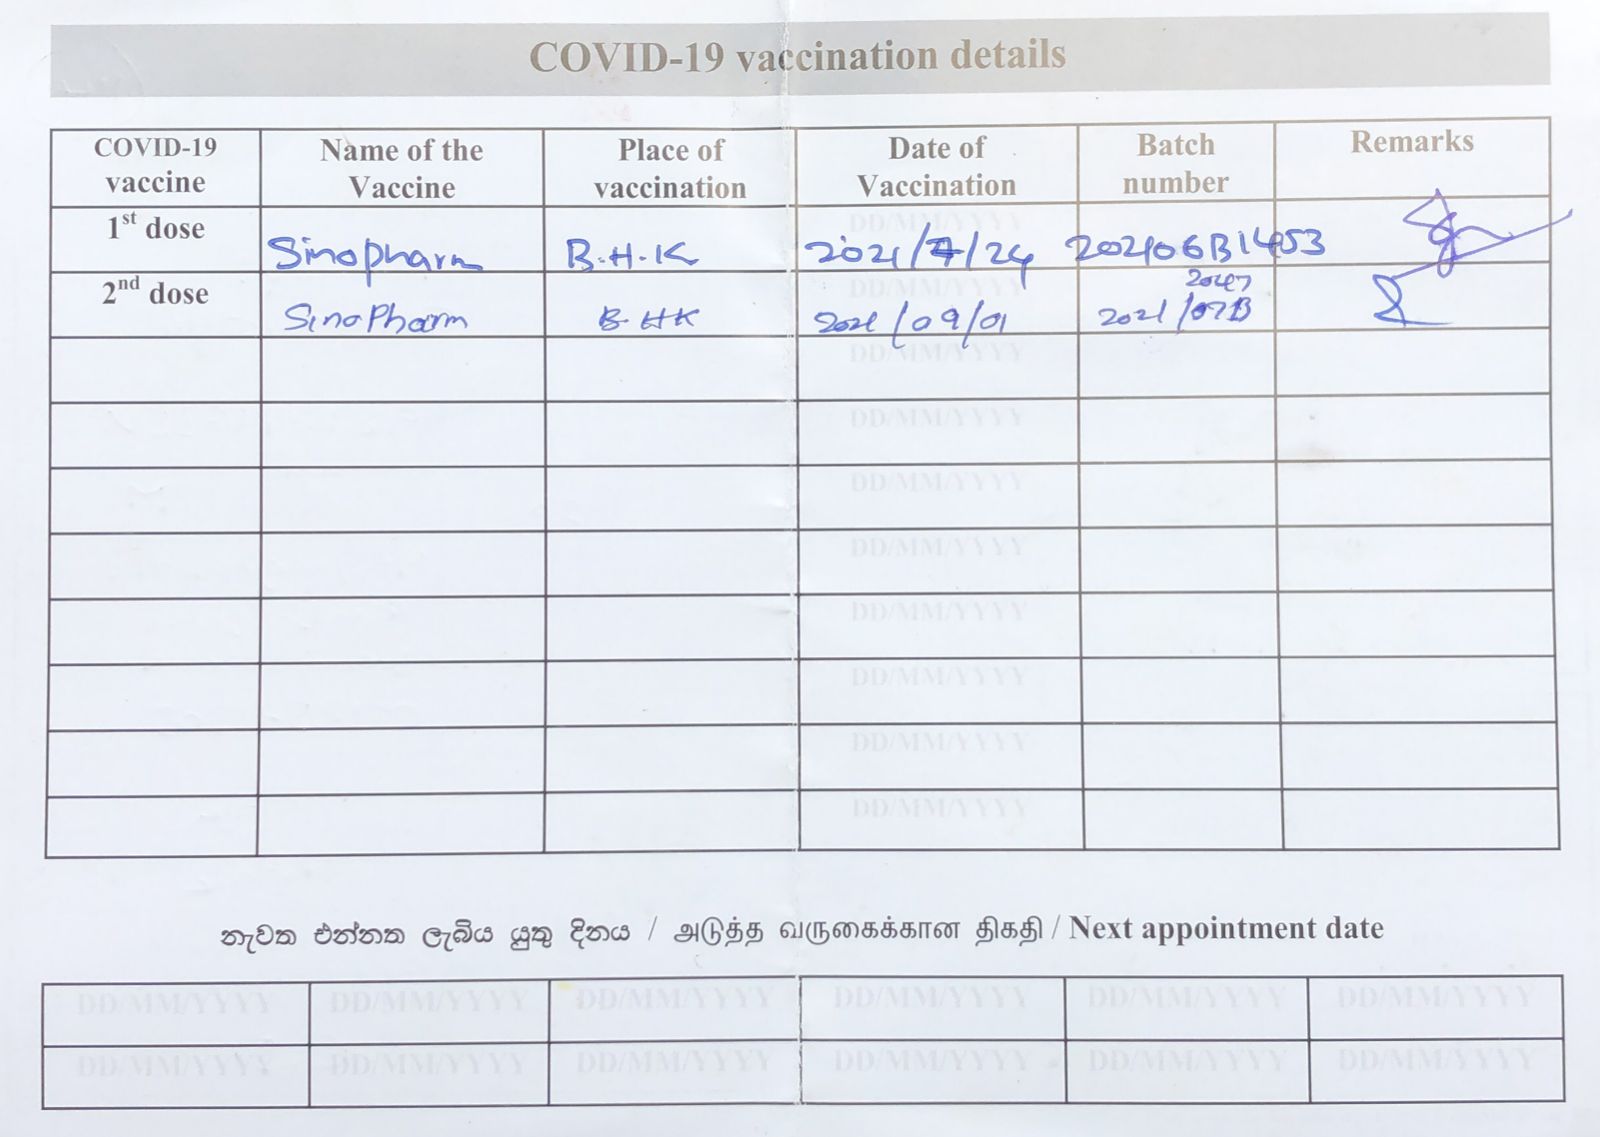 COVID-19 vaccination details
COVID-19 vaccine Name of the Vaccine Place of vaccination Date of Vaccination Batch number Remarks
1st dose Sinopharm B.H.K 2021/7/24 202106B1453
DD/MM/YYYY
2nd dose SinoPharm B-HK 2021/09/01 2021/07B
DD/MM/YYYY
DD/MM/YYYY
DD/MM/YYYY
DD/MM/YYYY
DD/MM/YYYY
DD/MM/YYYY
DD/MM/YYYY
DD/MM/YYYY
DD/MM/YYYY
නැවත එන්නත ලැබිය යුතු දිනය / அடுத்த வருகைக்கான திகதி / Next appointment date
DD/MM/YYYY DD/MM/YYYY DD/MM/YYYY DD/MM/YYYY DD/MM/YYYY DD/MM/YYYY
DD/MM/YYYY DD/MM/YYYY DD/MM/YYYY DD/MM/YYYY DD/MM/YYYY DD/MM/YYYY